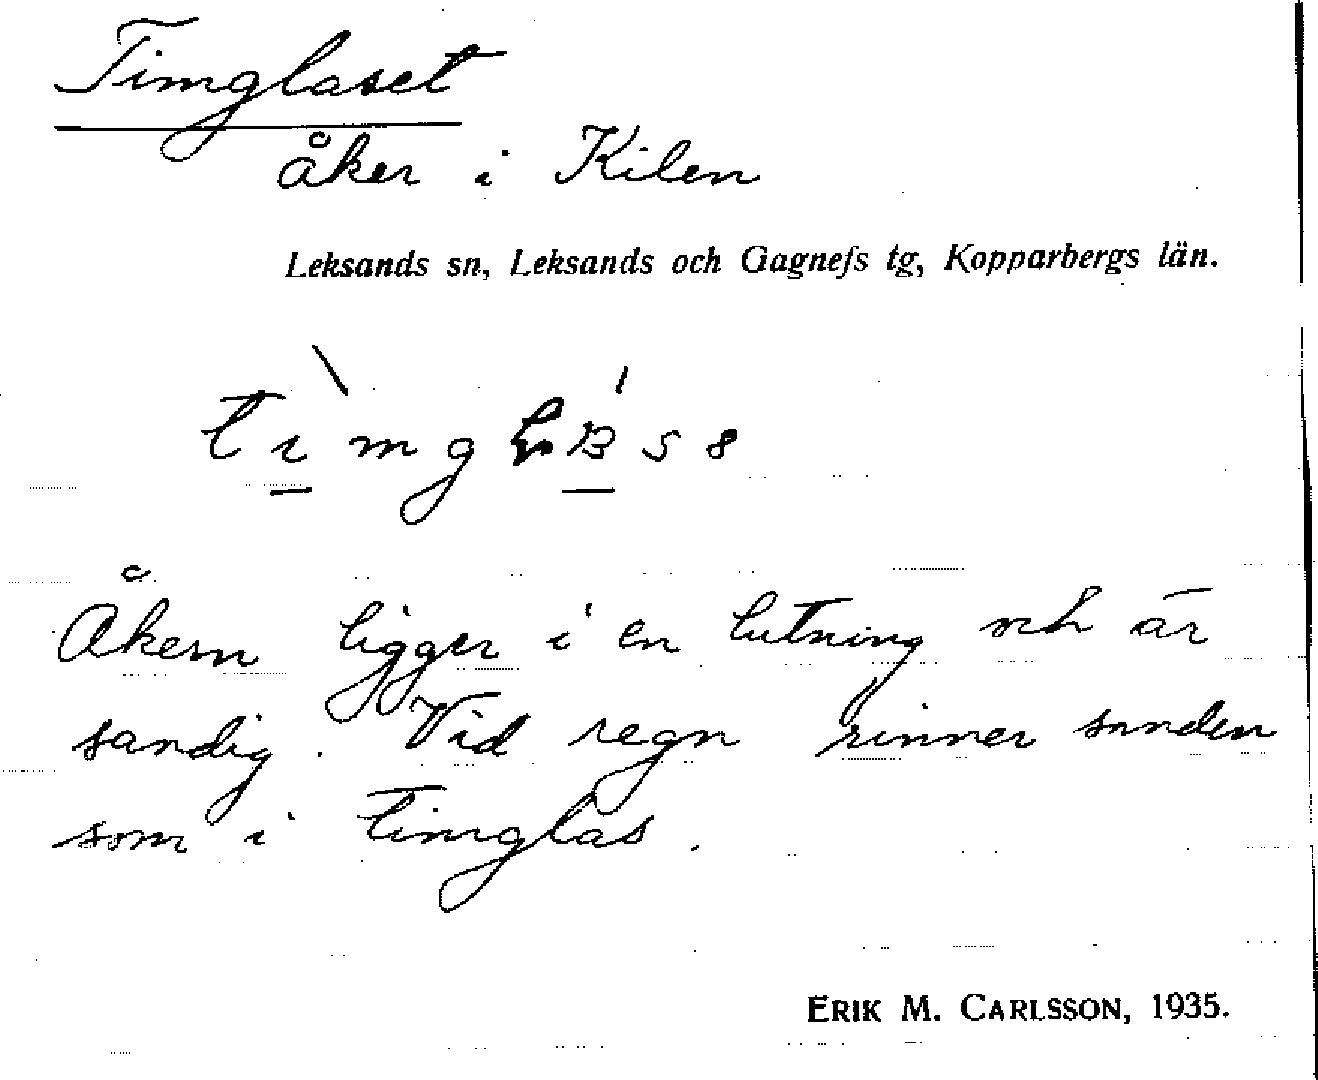 Timglaset
åker i Kilen
Leksands sn, Leksands och Gagnefs tg, Kopparbergs län.
Åkern ligger i en lutning och är
sandig. Vid regn rinner sanden
som i timglas.
ERIK M. CARLSSON, 1935.